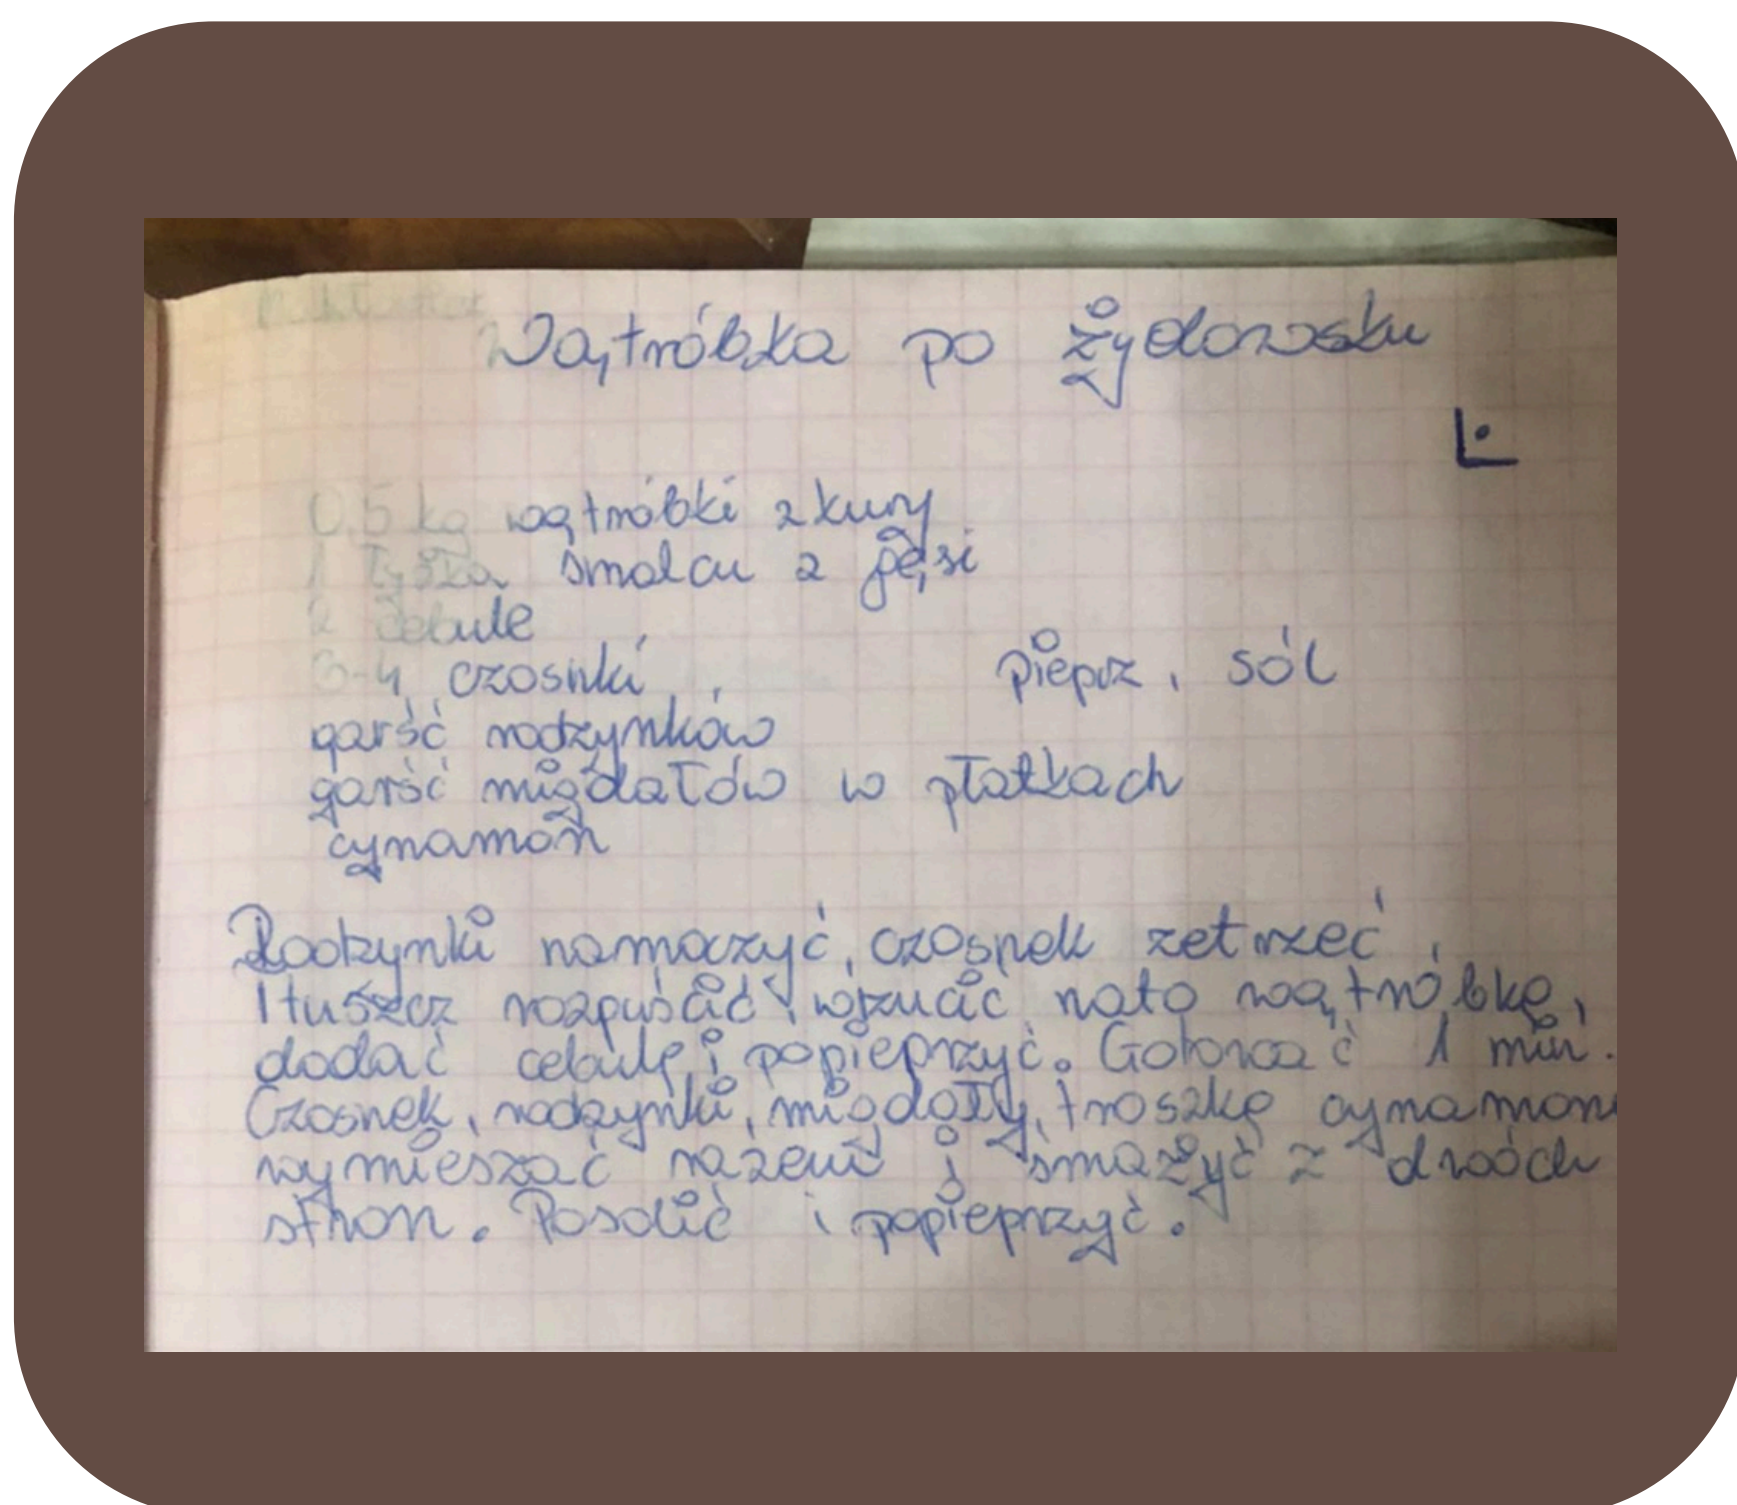 Wątróbka po żydowsku
0,5 kg wątróbki z kury
1 łyżka smalcu z gęsi
2 cebule
3-4 czosnki, pieprz, sól
garść rodzynków
garść migdałów w płatkach
cynamon
Rodzynki namoczyć, czosnek zetrzeć,
tłuszcz rozpuścić, wrzucić na to wątróbkę,
dodać cebulę i popieprzyć. Gotować 1 min.
Czosnek, rodzynki, migdały, troszkę cynamonu
wymieszać razem i smażyć z dwóch
stron. Posolić i popieprzyć.